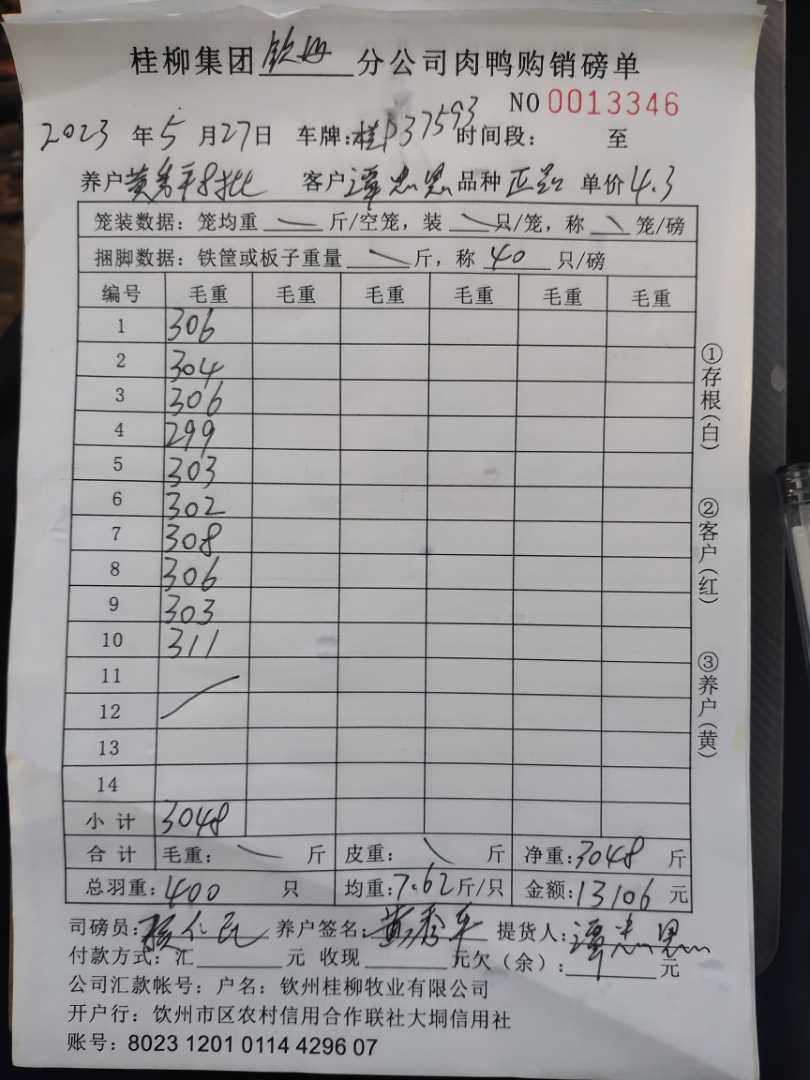 桂柳集团钦州分公司肉鸭购销磅单
NO 0013346
2023年5月27日 车牌:桂P37593 时间段: 至
养户黄秀平 批 客户谭忠恩 品种 单价4.3
笼装数据:笼均重 斤/空笼,装 只/笼,称 笼/磅
捆脚数据:铁筐或板子重量 斤,称 40 只/磅
编号 毛重 毛重 毛重 毛重 毛重 毛重
1 306
2 304
3 306
4 299
5 303
6 302
7 308
8 306
9 303
10 311
11
12
13
14
小计 3048
合计 毛重: 斤 皮重: 斤 净重:3048 斤
总羽重:400 只 均重:7.62斤/只 金额:13106 元
司磅员: 养户签名:黄秀平 提货人:谭忠恩
付款方式:汇 元 收现 元欠(余): 元
公司汇款帐号:户名:钦州桂柳牧业有限公司
开户行:饮州市区农村信用合作联社大垌信用社
账号:8023 1201 0114 4296 07
①存根(白)
②客户(红)
③养户(黄)